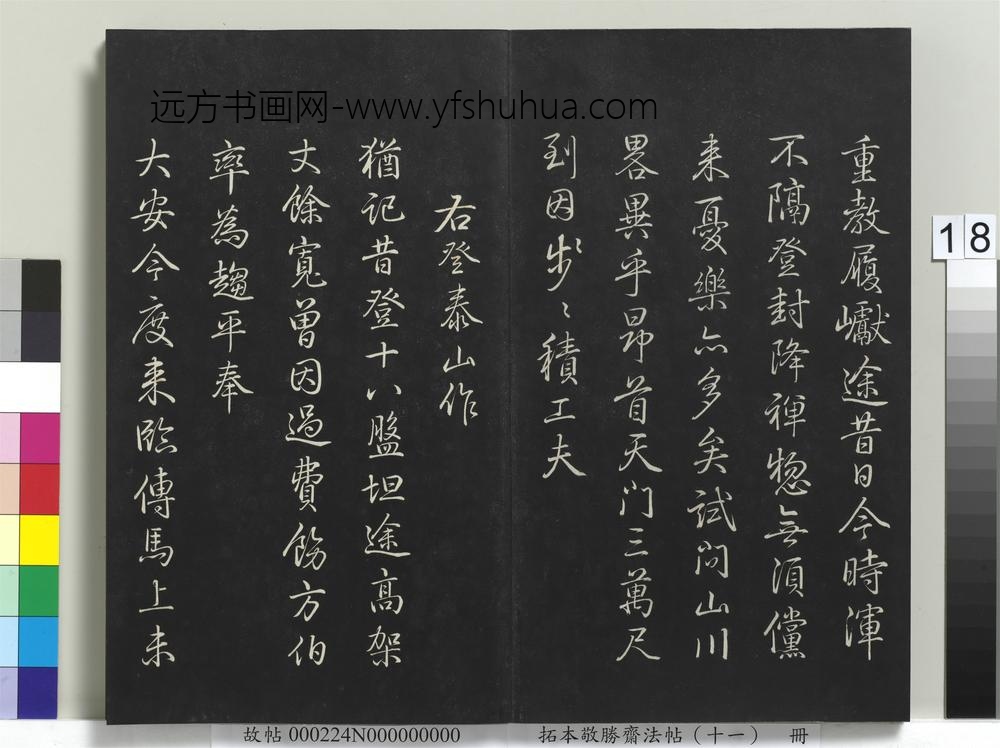 远方书画网-www.yfshuhua.com
重教履巘途昔日今時渾
不隔登封降禅惣無須儻
来憂樂亦多矣試问山川
畧異乎昂首天门三萬尺
到因步〻積工夫
右登泰山作
猶记昔登十八盤坦途高架
丈餘寬曽因過費飭方伯
率為趨平奉
大安今度来臨傳馬上未
18
故帖 000224N000000000
拓本敬勝齋法帖（十一） 冊